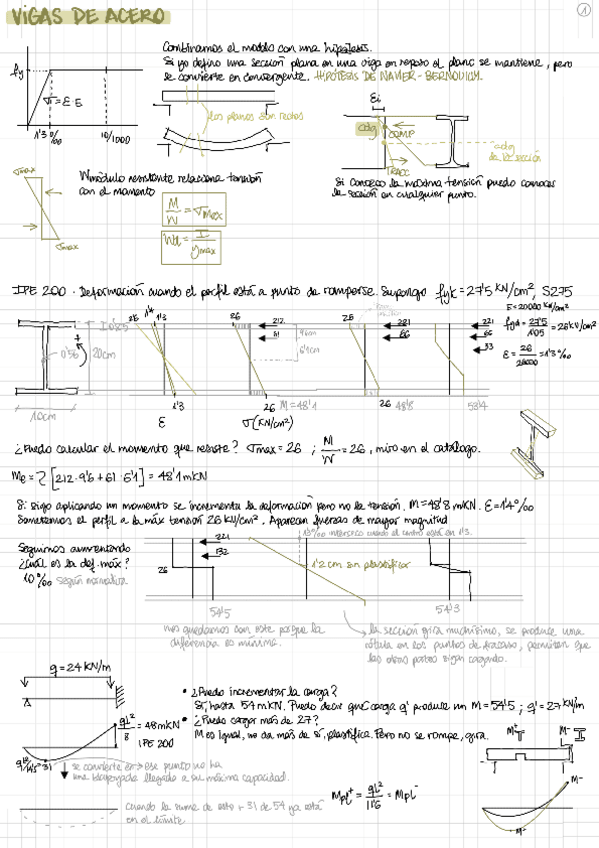 VIGAS DE ACERO
1
Combinamos el modelo con una hipótesis.
Si yo defino una sección plana en una viga en reposo el plano se mantiene, pero
se convierte en convergente. HIPÓTESIS DE NAVIER - BERNOUILLY.
fy
σ = ε·E
1'3 ‰
10/1000
los planos son rectos
εi
cdg
COMP
TRACC
cdg
de la sección
Si conozco la máxima tensión puedo conocer
la sección en cualquier punto.
σmax
σmax
W módulo resistente relaciona tensión
con el momento
M/W = σmax
Wel = I/ymax
IPE 200. Deformación cuando el perfil está a punto de romperse. Supongo fyk = 27'5 KN/cm², S275
E = 20000 KN/cm²
fyd = 27'5/1'05 = 26 KN/cm²
ε = 26/20000 = 1'3 ‰
0'56
20cm
10cm
26 1'4 1'3
26
212
61
9'6cm
6'1cm
26
221
66
221
66
33
ε
1'3
σ (KN/cm²)
26 M = 48'1
26 48'8
53'4
¿Puedo calcular el momento que resiste? σmax = 26 ; M/W = 26, miro en el catálogo.
Me = 2 [212·9'6 + 61·6'1] = 48'1 mKN
Si sigo aplicando un momento se incrementa la deformación pero no la tensión. M = 48'8 mKN. ε = 1'4 ‰
Sometemos el perfil a la máx tensión 26 KN/cm². Aparecen fuerzas de mayor magnitud
Seguimos aumentando
¿Cuál es la def. máx?
10 ‰ según normativa
26
221
132
1'2 cm sin plastificar
54'5
54'3
nos quedamos con este porque la
diferencia es mínima.
la sección gira muchísimo, se produce una
rótula en los puntos de fracaso, permiten que
las otras partes sigan cargando.
q = 24 KN/m
qL²/8 = 48 mKN
IPE 200
= 31
se convierte en ese punto no ha
llegado a su máxima capacidad.
cuando la suma de esto + 31 de 54 ya está
en el límite
• ¿Puedo incrementar la carga?
Si, hasta 54 mKN. Puedo decir que carga q' produce un M = 54'5 ; q' = 27 KN/m
• ¿Puedo cargar más de 27?
M es igual, no da más de sí, plastifica. Pero no se rompe, gira.
Mpl⁺ = qL²/11'6 = Mpl⁻
M⁺
M⁻
M⁻
M⁺